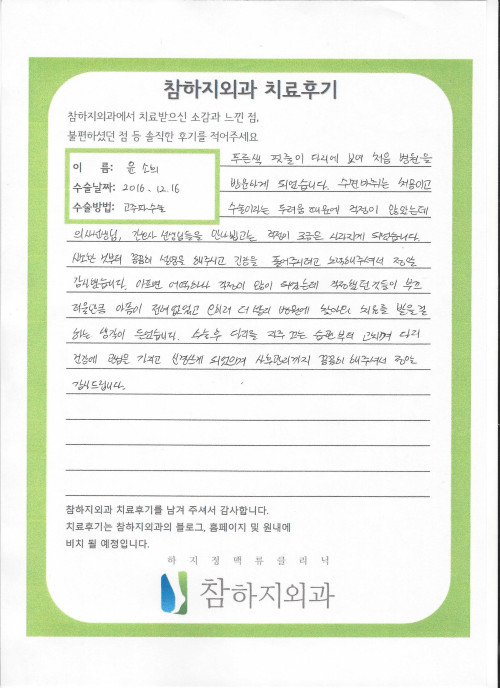 참하지외과 치료후기
참하지외과에서 치료받으신 소감과 느낀 점,
불편하셨던 점 등 솔직한 후기를 적어주세요
이 름: 윤 소희
수술날짜: 2016. 12. 16
수술방법: 고주파수술
푸른색 핏줄이 다리에 보여 처음 병원을
방문하게 되었습니다. 수면마취는 처음이고
수술이라는 두려움 때문에 걱정이 많았는데
의사선생님, 간호사 선생님들을 만나뵙고는 걱정이 조금은 사라지게 되었습니다.
사소한 것부터 꼼꼼히 설명을 해주시고 긴장을 풀어주시려고 노력해주셔서 정말
감사했습니다. 아프면 어떡하나 걱정이 많이 하였는데 걱정했던 것들이 부끄
러울만큼 아픔이 전혀없었고 오히려 더 빨리 병원에 찾아와 치료를 받을걸
하는 생각이 들었습니다. 수술 후 다리를 자주 꼬는 습관부터 고치며 다리
건강에 관심을 가지고 신경쓰게 되었으며 사후관리까지 꼼꼼히 해주셔서 정말
감사드립니다.
참하지외과 치료후기를 남겨 주셔서 감사합니다.
치료후기는 참하지외과의 블로그, 홈페이지 및 원내에
비치 될 예정입니다.
하지정맥류클리닉
참하지외과